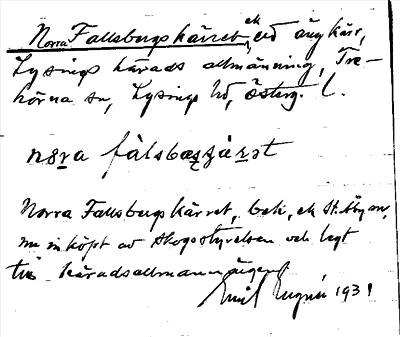 Norra Fallsbergskärret, ek ed äng kärr,
Lysings härads allmänning, Tre-
hörna sn, Lysings hd, Österg. l.
nɷra fàlsbæsʒàrət
Norra Fallsbergskärret, bek, ek
inköpt av Skogsstyrelsen och lagt
till häradsallmänningen
Emil 1931